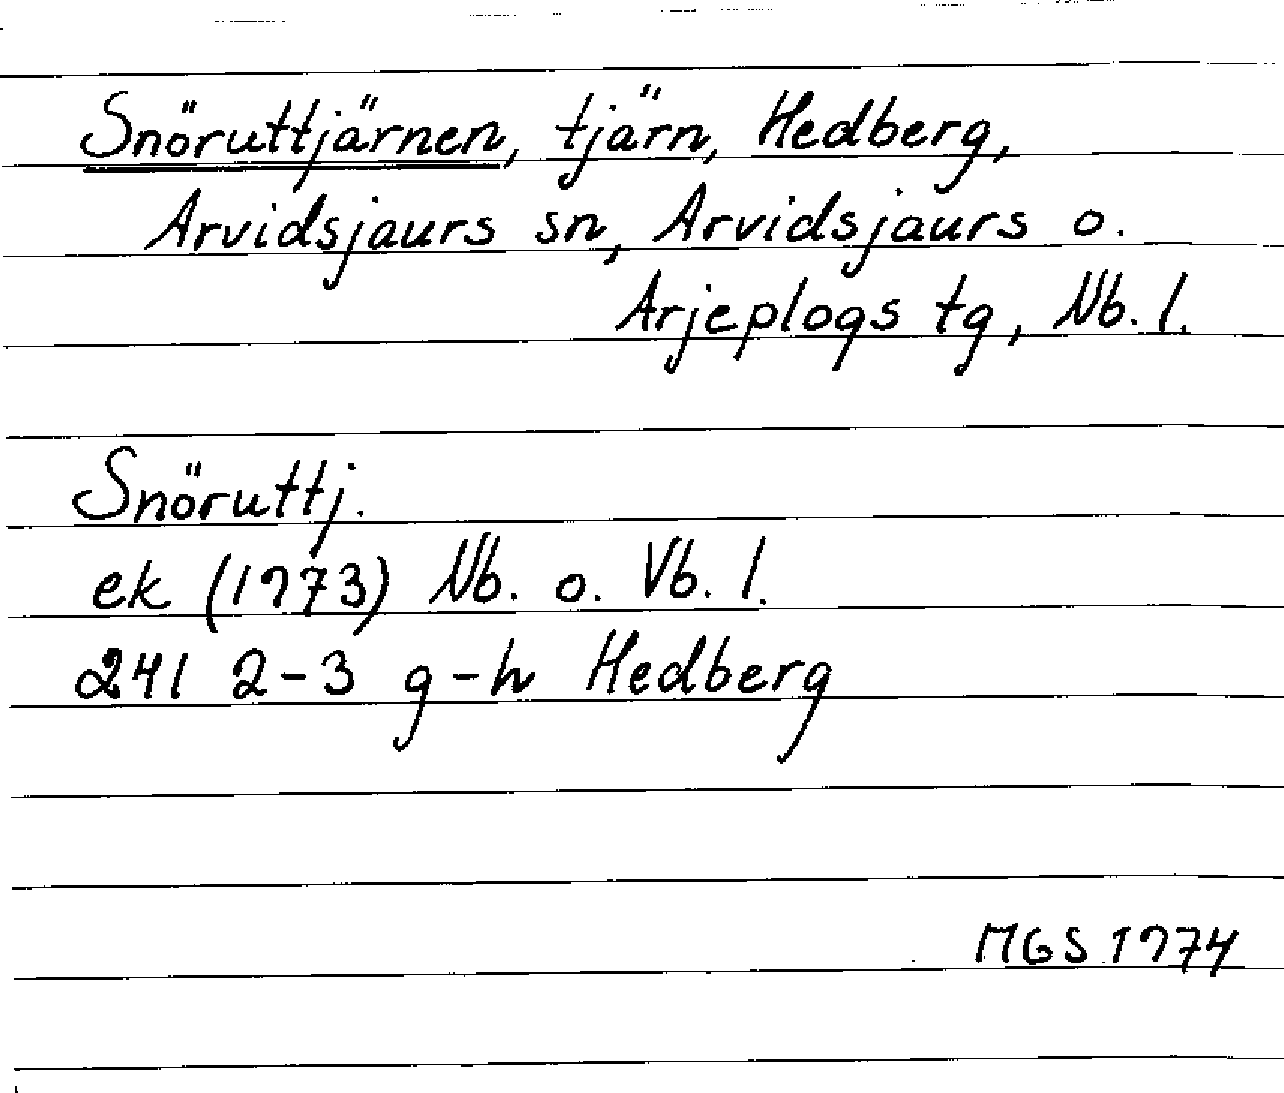 Snöruttjärnen, tjärn, Hedberg,
Arvidsjaurs sn, Arvidsjaurs o.
Arjeplogs tg, Nb. l.
Snöruttj.
ek (1973) Nb. o. Vb. l.
241 2-3 g-h Hedberg
MGS 1974